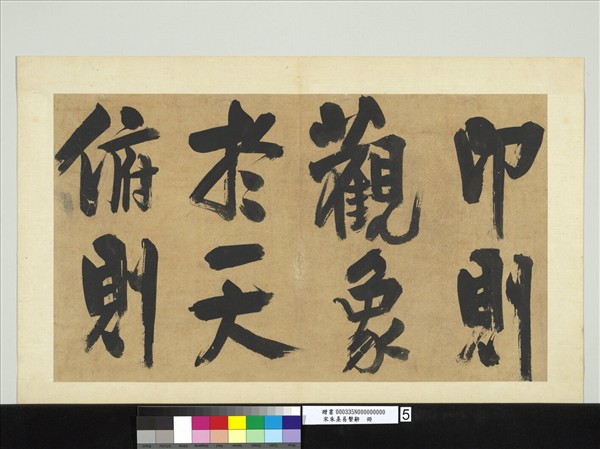 卬則
觀象
於天
俯則
贈書 000335N000000000
宋朱熹易繫辭 冊
5